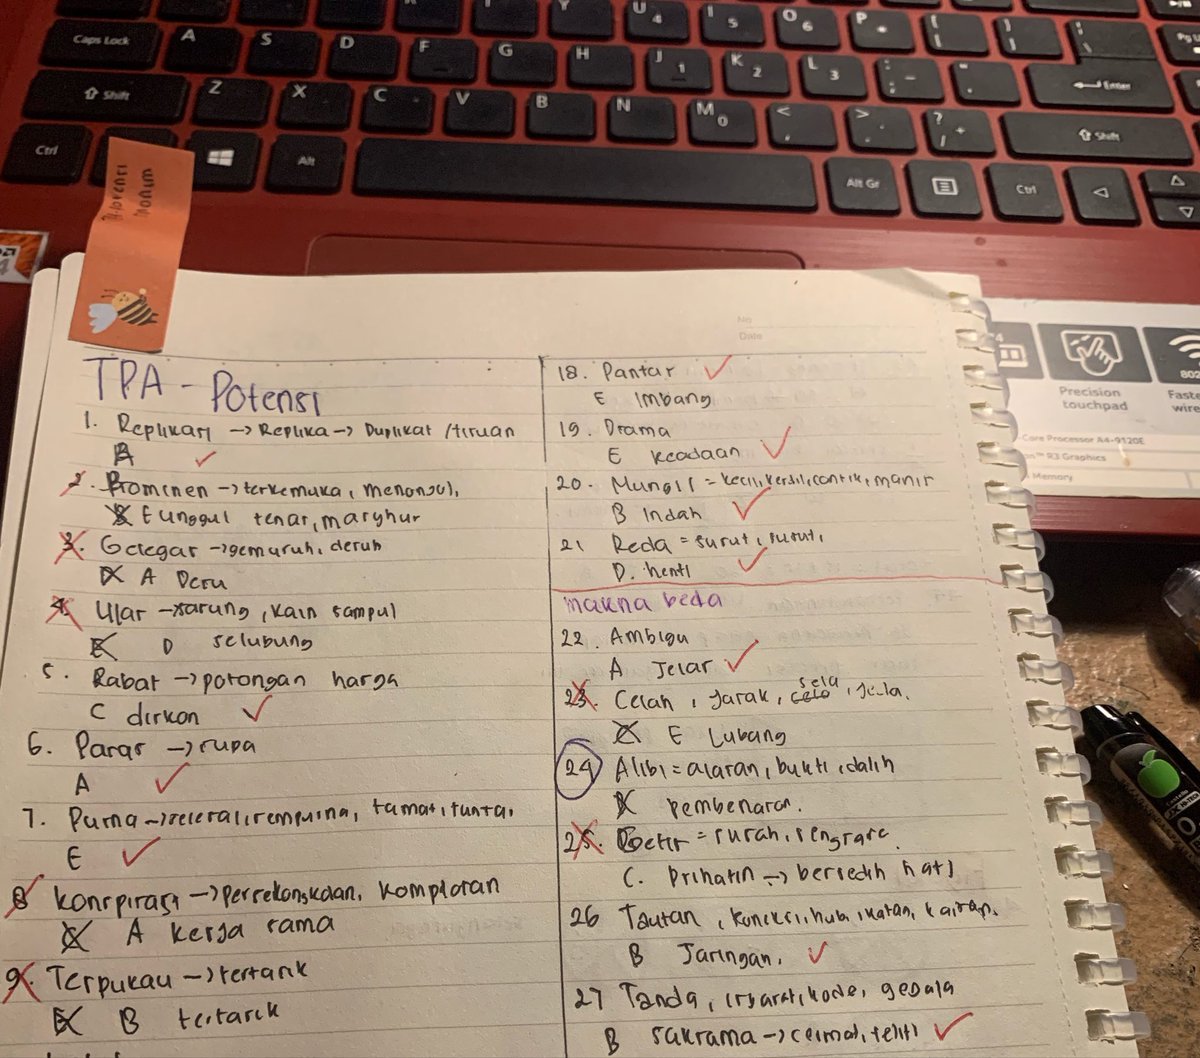 Caps Lock A S D F G H J 1 K 2 L 3
Shift Z X C V B N M 0 Enter
Ctrl Alt Alt Gr Ctrl Shift
U 4 I 5 O 6 P
Precision
touchpad
802
Core Processor A4-9120E
R3 Graphics
Memory
No
Date
TPA - Potensi
1. Replikasi → Replika → Duplikat / tiruan
B
2. Prominen → terkemuka, menonjol,
E unggul tenar, masyhur
3. Gelegar → gemuruh, deruh
A Deru
4. Ular → sarung, kain sampul
D selubung
5. Rabat → potongan harga
C diskon
6. Paras → rupa
A
7. Purna → selesai, sempurna, tamat, tuntas,
E
8. Konspirasi → persekongkolan, komplotan
A kerja sama
9. Terpukau → tertarik
B tertarik
18. Pantar
E Imbang
19. Drama
E keadaan
20. Mungil = kecil, kersil, cantik, manis
B Indah
21 Reda = surut, susut,
D. henti
makna beda
22. Ambigu
A Jelas
23. Celah, jarak, sela, jela.
E Lubang
24 Alibi = alasan, bukti, dalih
pembenaran.
25. Getir = susah, sengsara.
C. Prihatin → bersedih hati
26 Tautan, koneksi, hub, ikatan, kaitan,
B Jaringan.
27 Tanda, isyarat, kode, gejala
B saksama → cermat, teliti